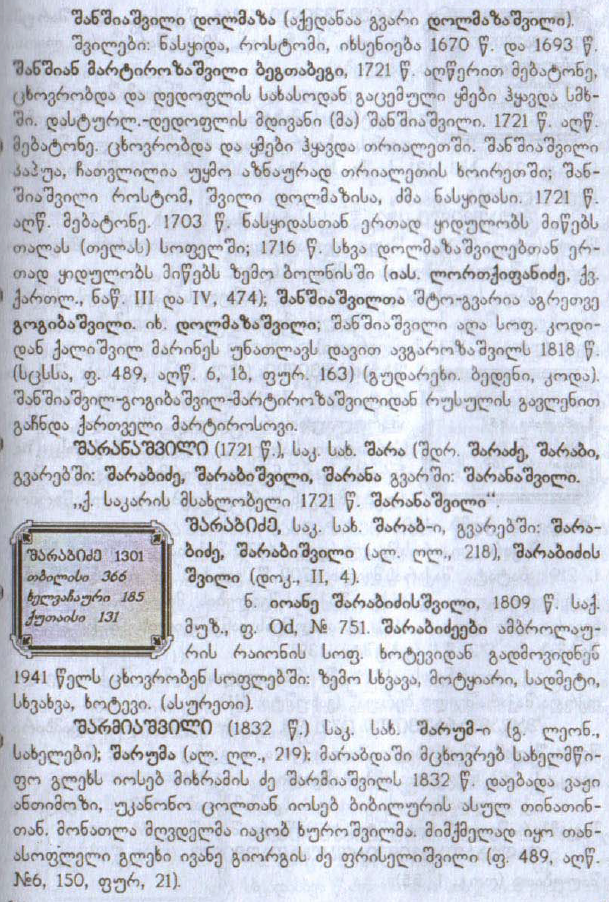 შანშიაშვილი დოლმაზა (აქედანაა გვარი დოლმაზაშვილი).
შვილები: ნასყიდა, როსტომი, იხსენიება 1670 წ. და 1693 წ.
შანშიან მარტიროზაშვილი ბეგთაბეგი, 1721 წ. აღწერით მებატონე,
ცხოვრობდა და დედოფლის სახასოდან გაცემული ყმები ჰყავდა სმხ-
ში. დასტურლ.-დედოფლის მდივანი (მა) შანშიაშვილი. 1721 წ. აღწ.
მებატონე. ცხოვრობდა და ყმები ჰყავდა თრიალეთში. შანშიაშვილი
პაპუა, ჩათვლილია უყმო აზნაურად თრიალეთის ხოირეთში; შან-
შიაშვილი როსტომ, შვილი დოლმაზისა, ძმა ნასყიდასი. 1721 წ.
აღწ. მებატონე. 1703 წ. ნასყიდასთან ერთად ყიდულობს მიწებს
თალას (თელას) სოფელში; 1716 წ. სხვა დოლმაზაშვილებთან ერ-
თად ყიდულობს მიწებს ზემო ბოლნისში (იას. ლორთქიფანიძე, ქვ.
ქართლ., ნაწ. III და IV, 474); შანშიაშვილთა შტო-გვარია აგრეთვე
გოგიბაშვილი. იხ. დოლმაზაშვილი; შანშიაშვილი აღა სოფ. კოდი-
დან ქალიშვილ მარინეს უნათლავს დავით ავგაროზაშვილს 1818 წ.
(სცსსა, ფ. 489, აღწ. 6, 1ბ, ფურ. 163) (გუდარეხი. ბედენი, კოდა).
შანშიაშვილ-გოგიბაშვილ-მარტიროზაშვილიდან რუსულის გავლენით
გაჩნდა ქართველი მარტიროსოვი.
ᲨᲐᲠᲐᲜᲐᲨᲕᲘᲚᲘ (1721 წ.), საკ. სახ. შარა (შდრ. შარაძე, შარაბი,
გვარებში: შარაბიძე, შარაბიშვილი, შარანა გვარში: შარანაშვილი.
„ქ. საკარის მსახლობელი 1721 წ. შარანაშვილი“.
ᲨᲐᲠᲐᲑᲘᲫᲔ, საკ. სახ. შარაბ-ი, გვარებში: შარა-
ბიძე, შარაბიშვილი (ალ. ღლ., 218), შარაბიძის
შვილი (დოკ., II, 4).
ნ. იოანე შარაბიძისშვილი, 1809 წ. საქ.
მუზ., ფ. Od, № 751. შარაბიძეები ამბროლაუ-
რის რაიონის სოფ. ხოტევიდან გადმოვიდნენ
ᲨᲐᲠᲐᲑᲘᲫᲔ 1301
თბილისი 366
ხელვაჩაური 185
ქუთაისი 131
1941 წელს ცხოვრობენ სოფლებში: ზემო სხვავა, მოტყიარი, სადმეტი,
სხვახვა, ხოტევი. (ასურეთი).
ᲨᲐᲠᲛᲘᲐᲨᲕᲘᲚᲘ (1832 წ.) საკ. სახ. შარუმ-ი (გ. ლეონ.,
სახელები); შარუმა (ალ. ღლ., 219); მარაბდაში მცხოვრებ სახელმწი-
ფო გლეხს იოსებ მიხრამის ძე შარმიაშვილს 1832 წ. დაებადა ვაჟი
ანთიმოზი, უკანონო ცოლთან იოსებ ბიბილურის ასულ თინათინ-
თან. მონათლა მღვდელმა იაკობ ხუროშვილმა. მიმქმელად იყო თან-
ასოფლელი გლეხი ივანე გიორგის ძე ფრისელიშვილი (ფ. 489, აღწ.
№6, 150, ფურ, 21).